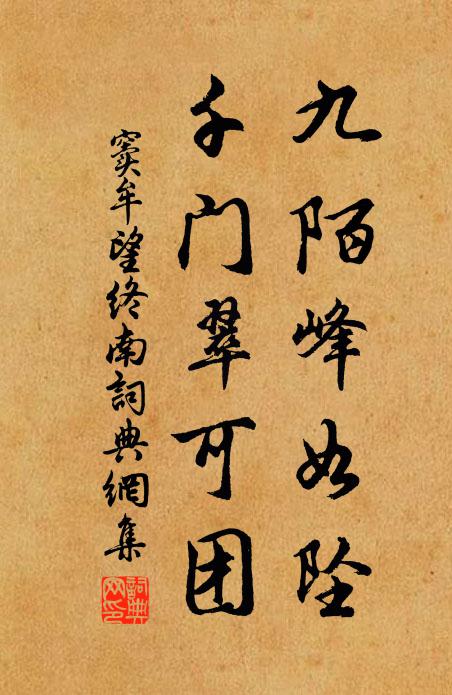 九陌峰如坠
千门翠可团
窦牟望终南詞典網集
詞典
网印